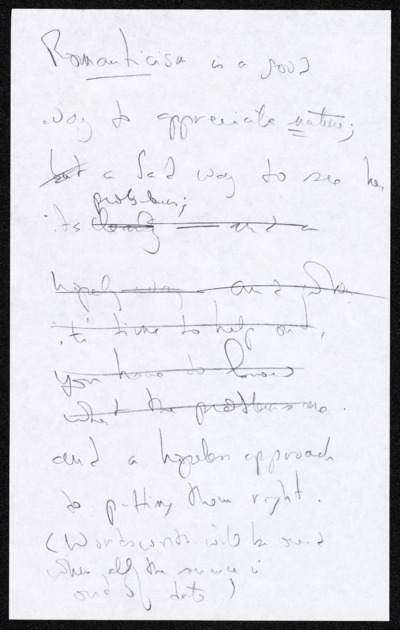 Romanticism is a good
way to appreciate nature;
but a bad way to see
problems;
its and a
hopeless way and when
it's time to help out,
you have to know
what the problems are.
and a hopeless approach
to putting them right.
(Wordsworth will be read
when all the science is
out of date)